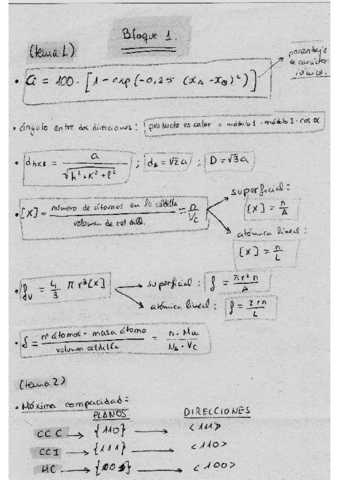 Bloque 1.
(tema 1)
• Ci = 100 · [1 - exp(-0,25 (xA - xB)²)]
porcentaje
de carácter
iónico.
• ángulo entre dos direcciones: producto escalar = módulo 1 · módulo 2 · cos α
• dhkl = a / √(h² + k² + l²) ; dA = √2 a ; D = √3 a
• [X] = número de átomos en la celdilla / volumen de celdill. = n / Vc
superficial:
[X] = n / A
atómica lineal:
[X] = n / L
• ρv = 4/3 π r³ [X]
superficial: ρ = π r² n / A
atómica lineal: ρ = 2 r n / L
• δ = nº átomos · masa átomo / volumen celdilla = n · Mm / NA · Vc
(tema 2)
• Máxima compacidad:
PLANOS DIRECCIONES
CCC → {110} → <111>
CCI → {111} → <110>
HC → {001} → <100>